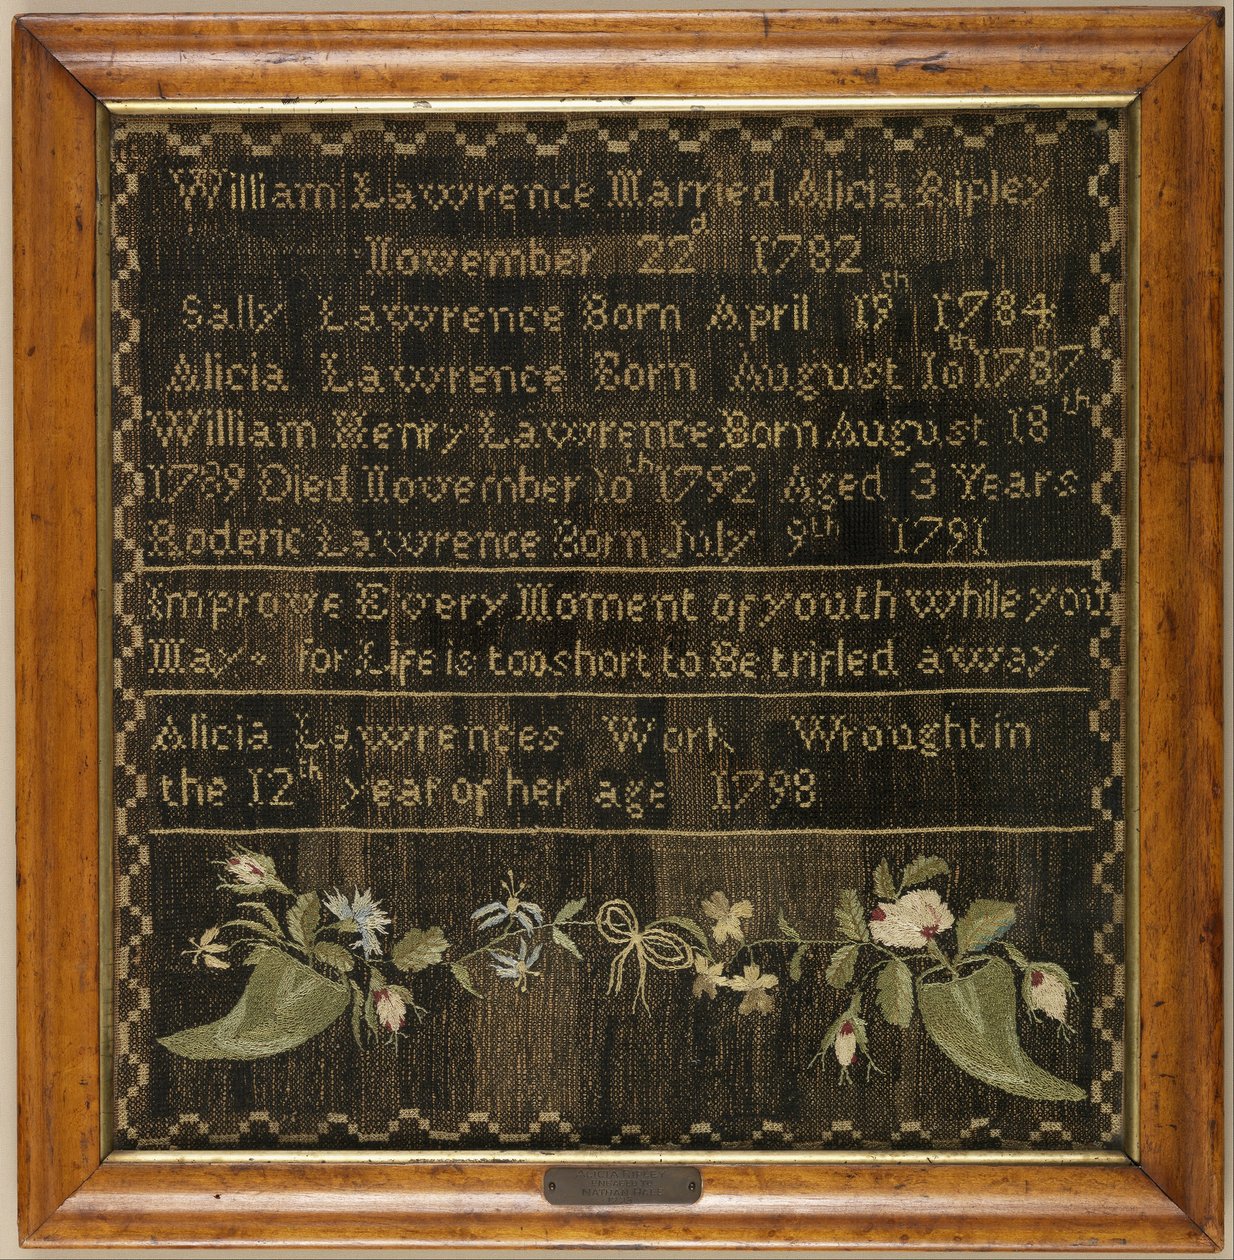 William Lawrence Married Alicia Ripley
November 22d 1782
Sally Lawrence Born April 19th 1784
Alicia Lawrence Born August 10th 1787
William Henry Lawrence Born August 18th
1789 Died November 10th 1792 Aged 3 Years
Roderic Lawrence Born July 9th 1791
Improve Every Moment of youth while you
May for Life is too short to Be trifled away
Alicia Lawrences Work Wrought in
the 12th year of her age 1798
ALICIA RIPLEY
ENGAGED TO
NATHAN HALE